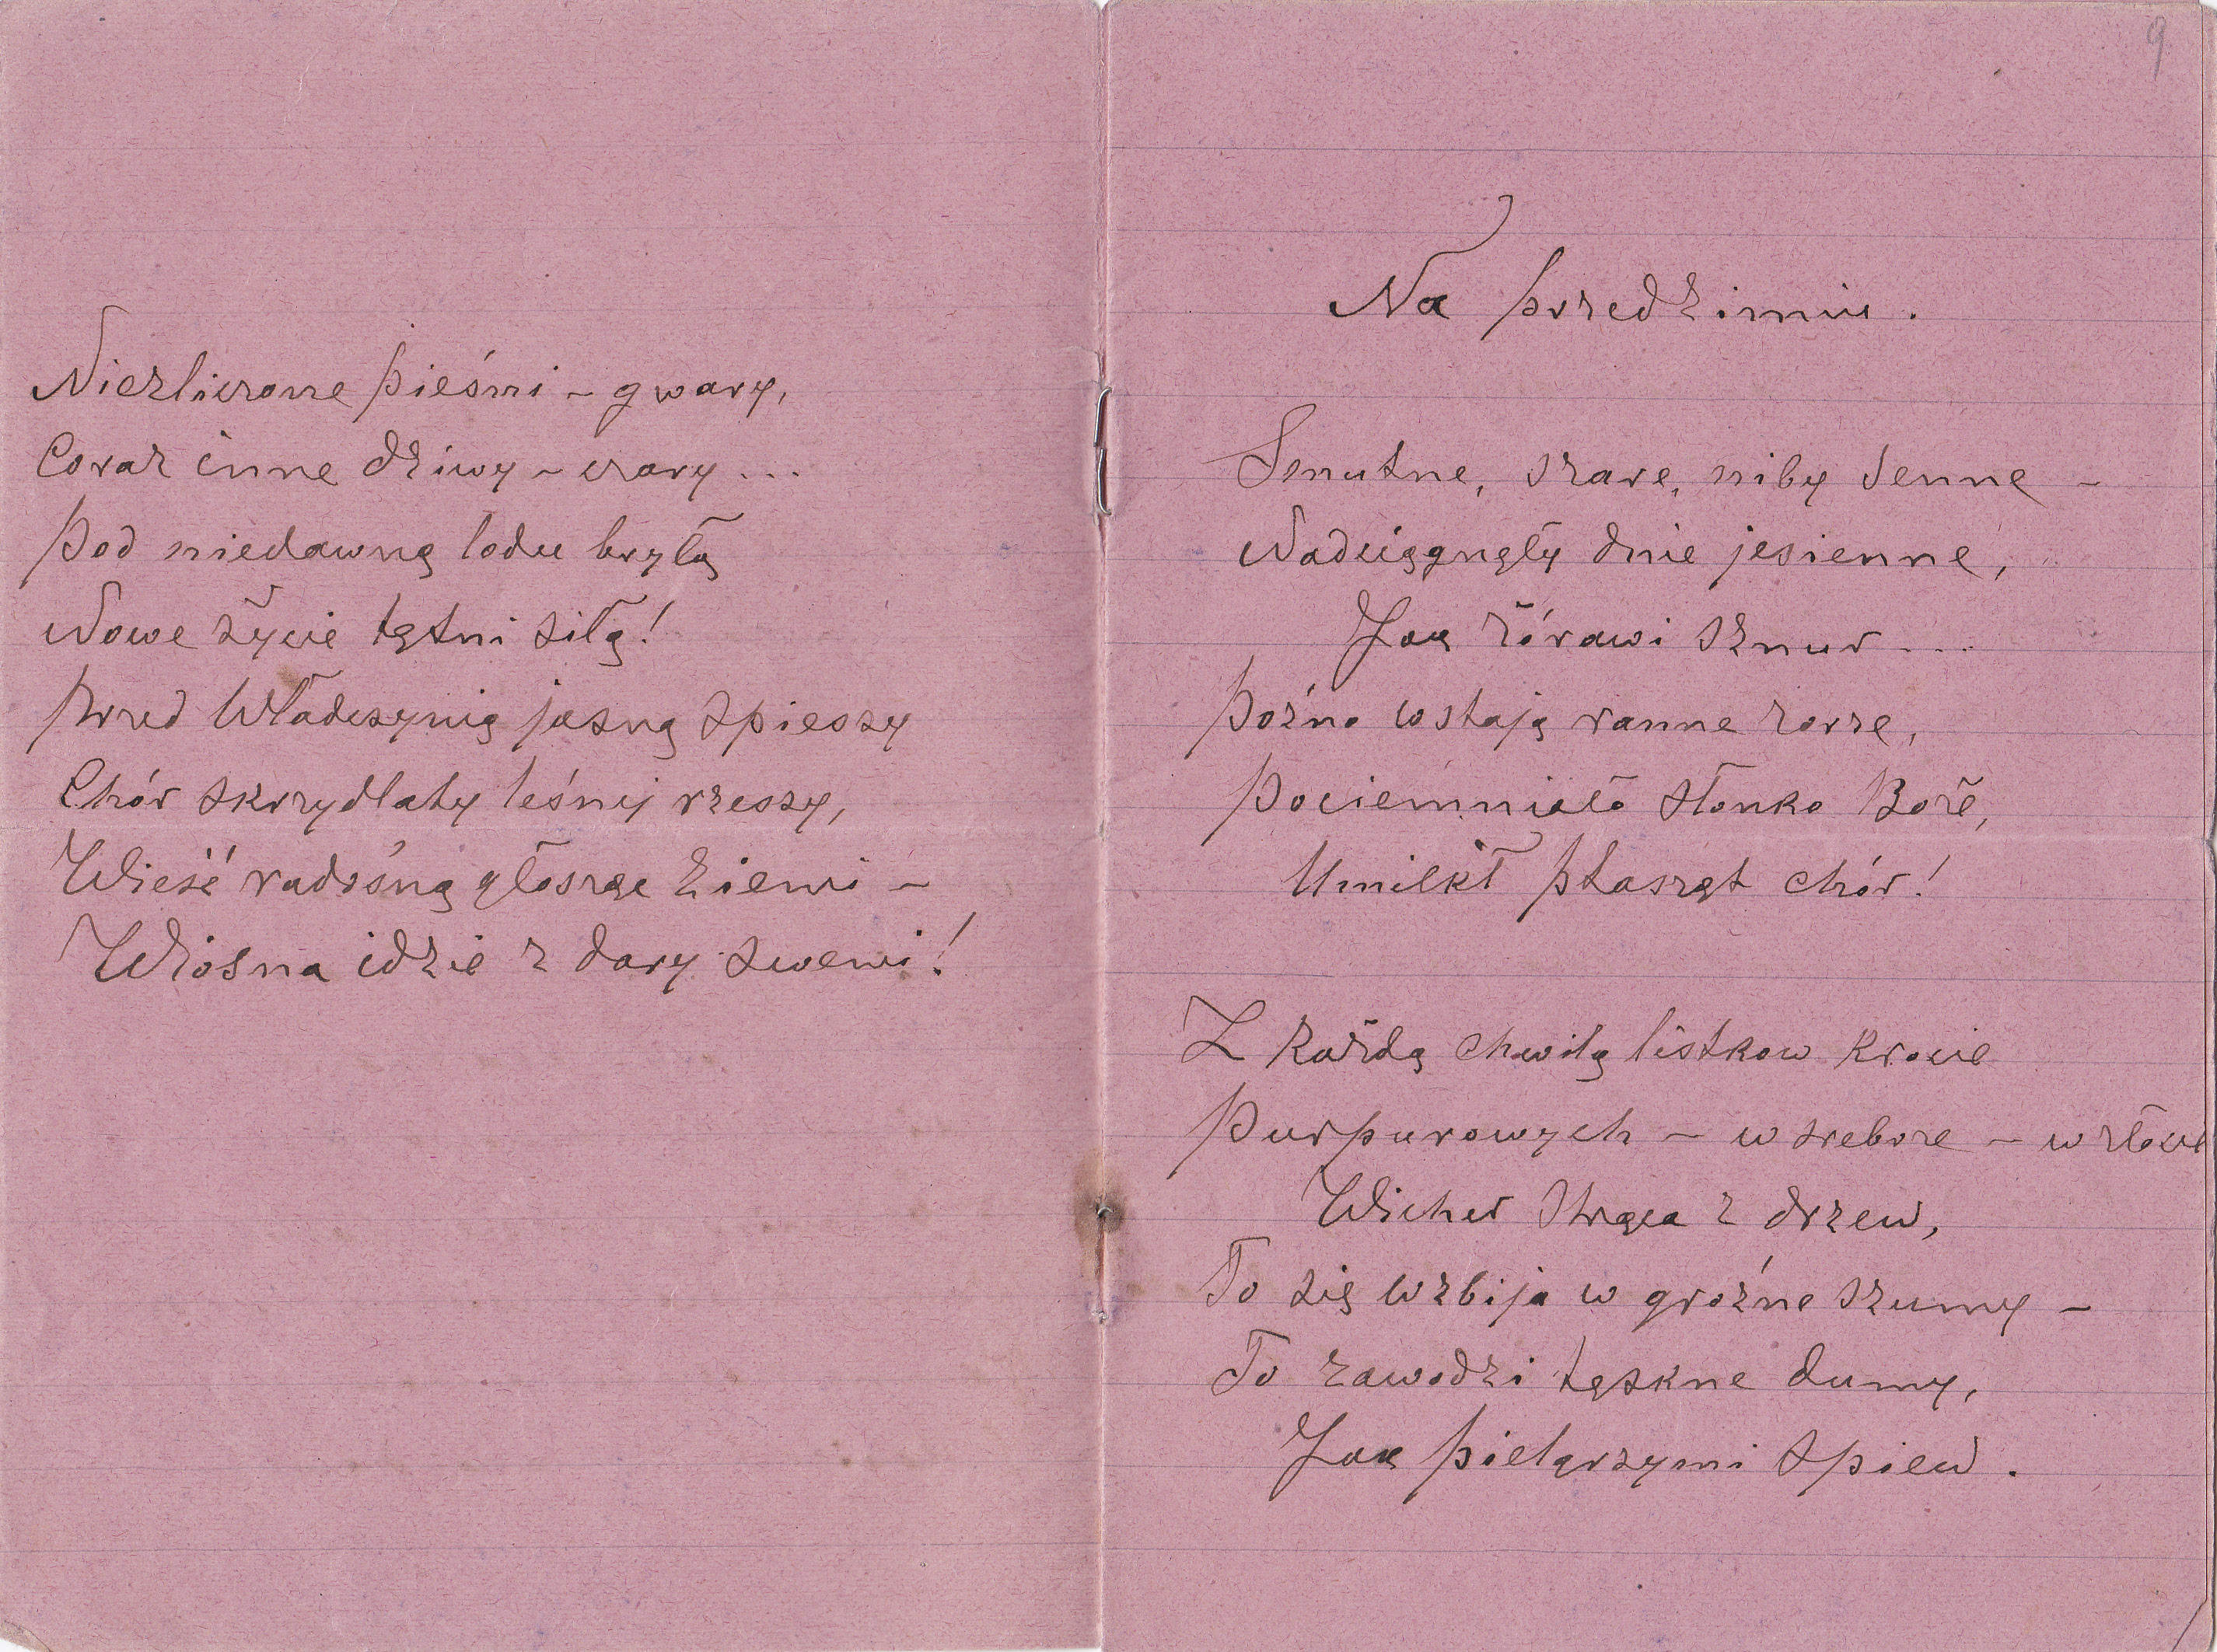 Niezliczone pieśni – gwary,
Coraz inne dziwy – czary...
Pod niedawną lodu bryłą
Nowe życie tętni siłą!
Przed Władczynią jasną spieszy
Chór skrzydlaty leśnej rzeszy,
Wieść radosną głosząc ziemi –
Wiosna idzie z dary swemi!
9
Na przedzimiu.
Smutne, szare, niby senne –
Nadciągnęły dnie jesienne,
Jak żórawi sznur...
Poźno wstają ranne zorze,
Pociemniało słonko Boże,
Umilkł ptasząt chór!
Z każdą chwilą listkow krocie
Purpurowych – w srebrze – w złocie
Wicher strąca z drzew,
To się wzbija w groźne szumy –
To zawodzi tęskne dumy,
Jak pielgrzymi spiew.